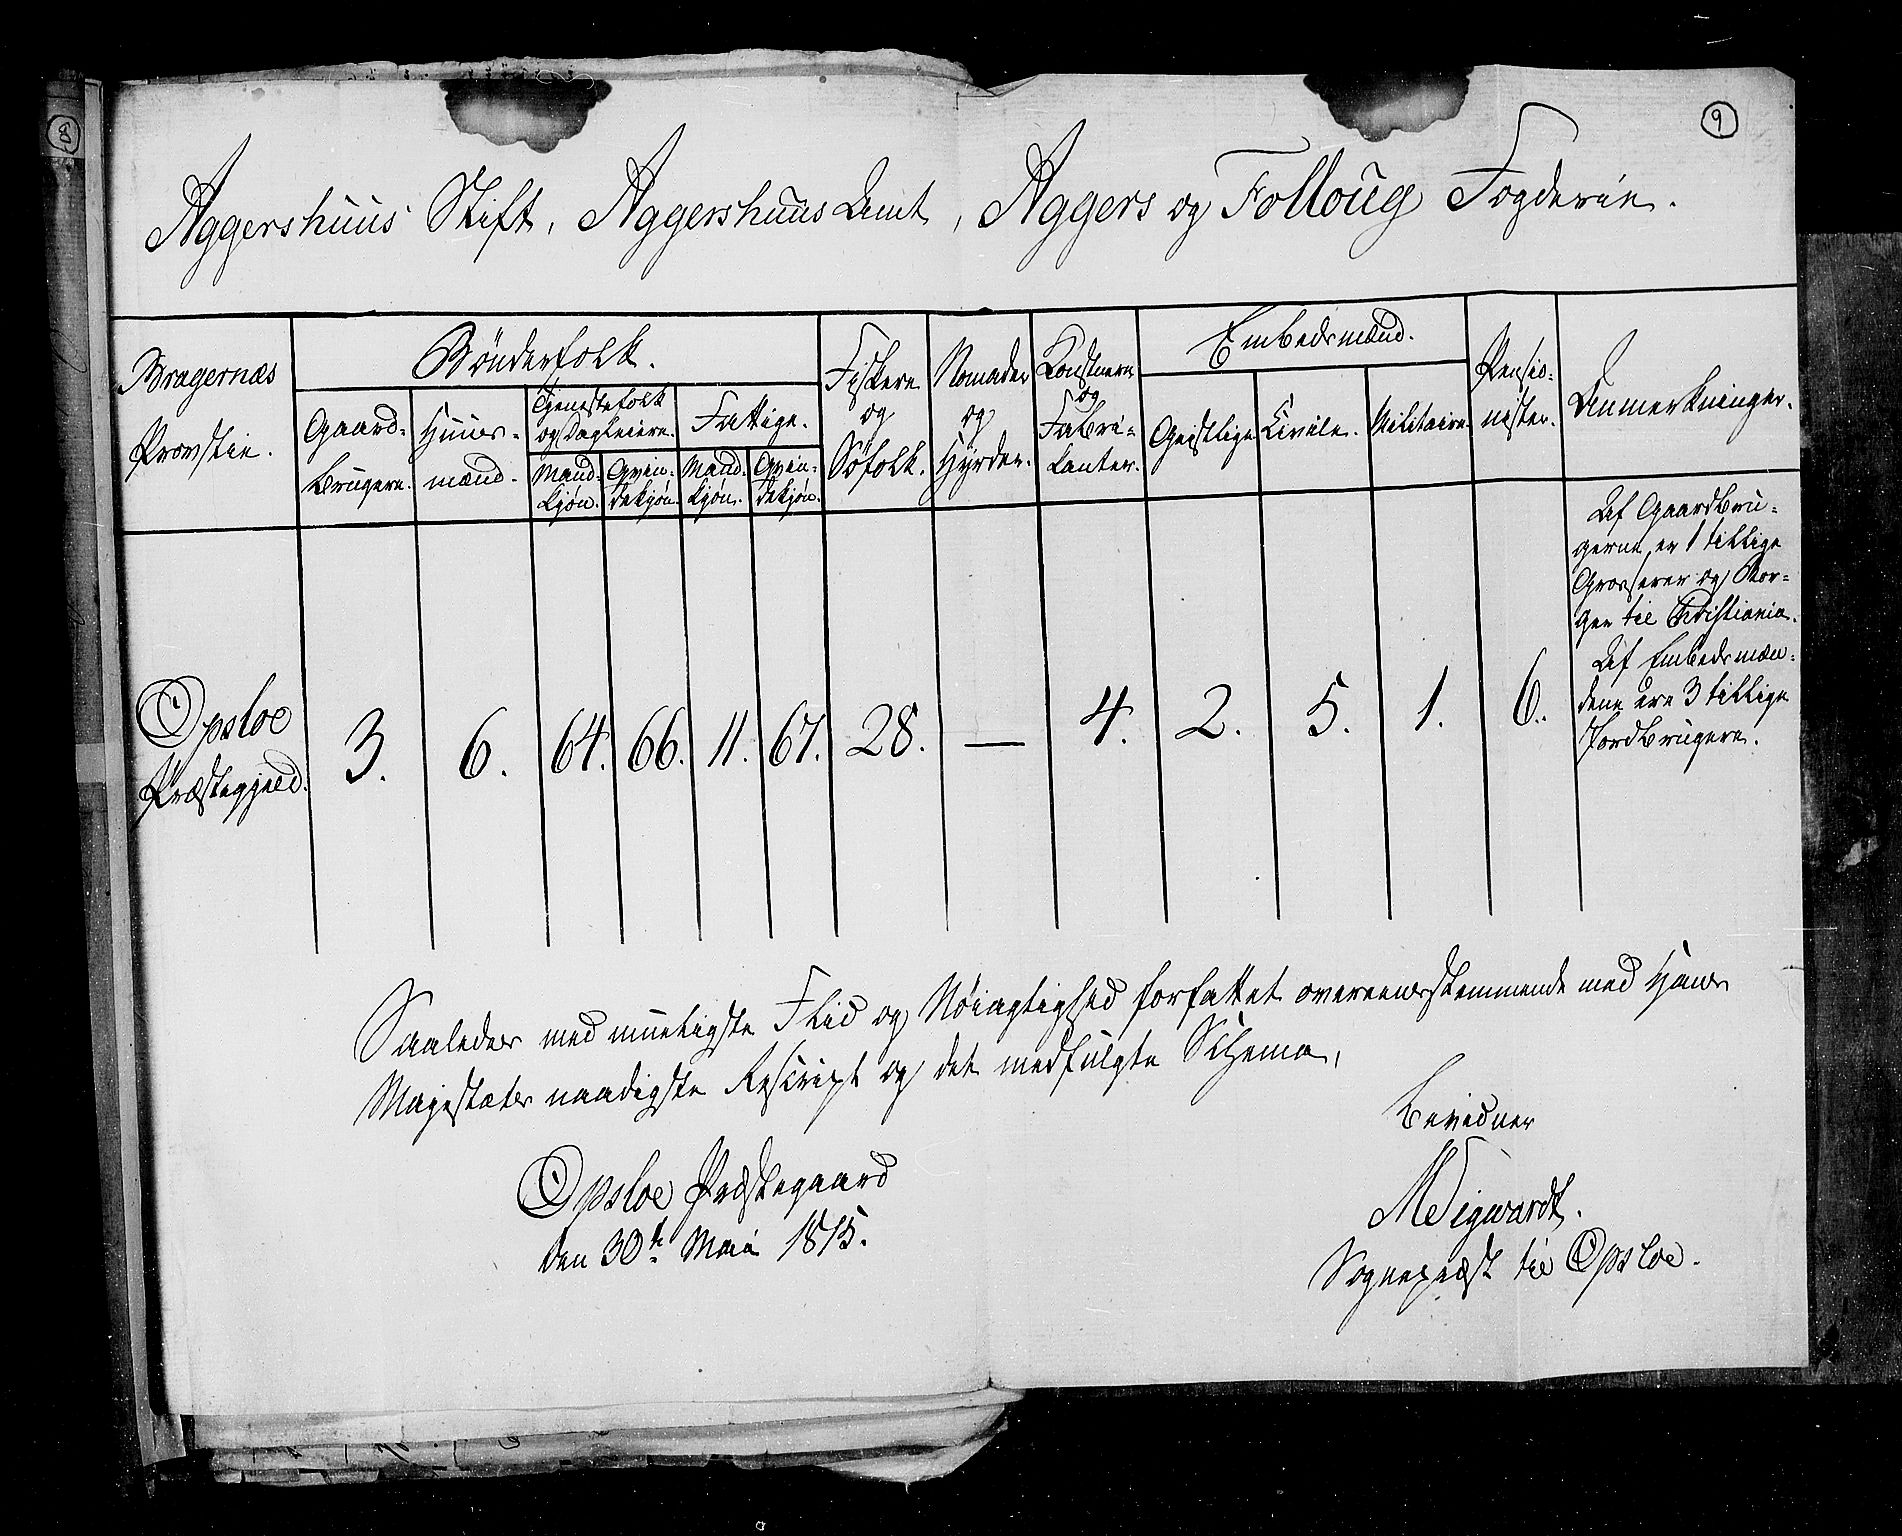 8
9
Aggershuus Stift, Aggershuus Amt, Aggers og Folloug Fogderie.
Bragernæs
Provstie.
Bönderfolk.
Gaard-
brugere.
Huus-
mænd.
Tjenestefolk
og Dagleiere.
Mand-
kjøn.
Qvin-
dekjøn.
Fattige.
Mand-
kjøn.
Qvin-
dekjøn.
Fiskere
og
Søfolk.
Nomader
og
Hyrder.
Konstnere
og
Fabri-
kanter.
Embedsmænd.
Geistlige
Civile.
Militaire.
Pensio-
nister.
Anmerkninger.
Opsloe
Præstegjeld.
3.
6.
64.
66.
11.
67.
28.
—
4.
2.
5.
1.
6.
Af Gaardbru-
gerne er 1 tillige
Grosserer og Bor-
ger til Christiania.
Af Embedsmæn-
dene ere 3 tillige
Jordbrugere.
Saaledes med mueligste Flid og Nøiagtighed forfattet overeensstemmende med Hans
Majestæts naadigste Rescript og det medfulgte Schema,
bevidner
Opsloe Præstegaard
den 30te Maii 1815.
MSigwardt.
Sognepræst til Opsloe.